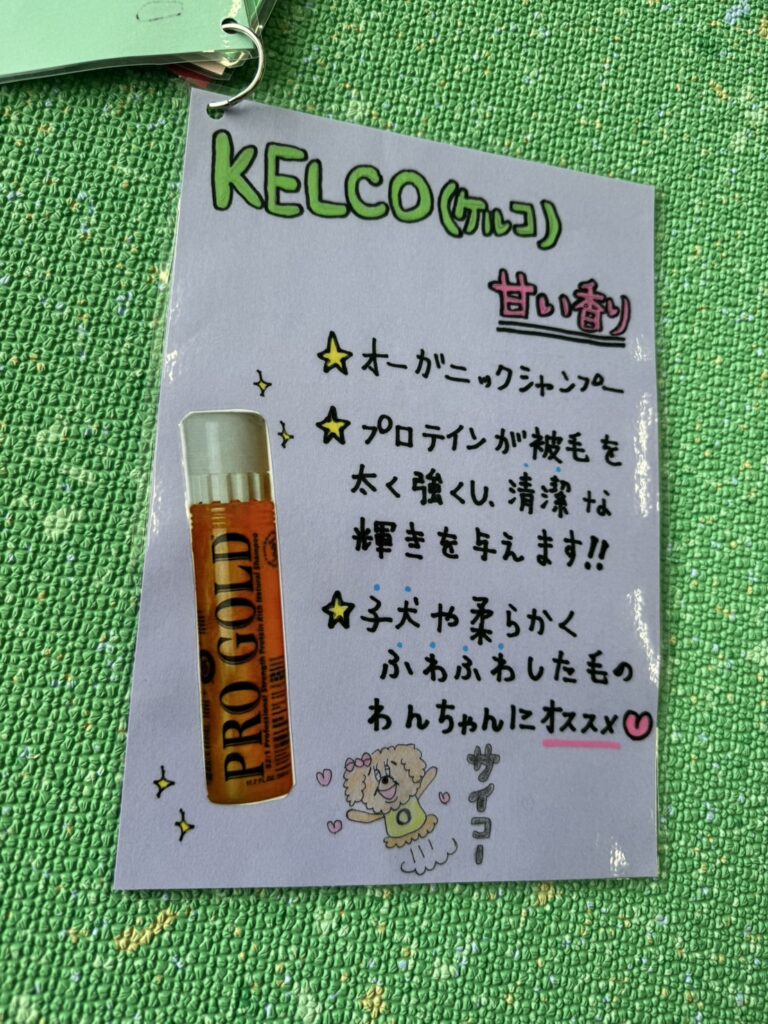 KELCO(ケルコ)
甘い香り
オーガニックシャンプー
プロテインが被毛を
太く強くし、清潔な
輝きを与えます!!
子犬や柔らかく
ふわふわした毛の
わんちゃんにオススメ
サイコー
PRO GOLD
82/1 Professional Strength Protein Rich Natural Shampoo